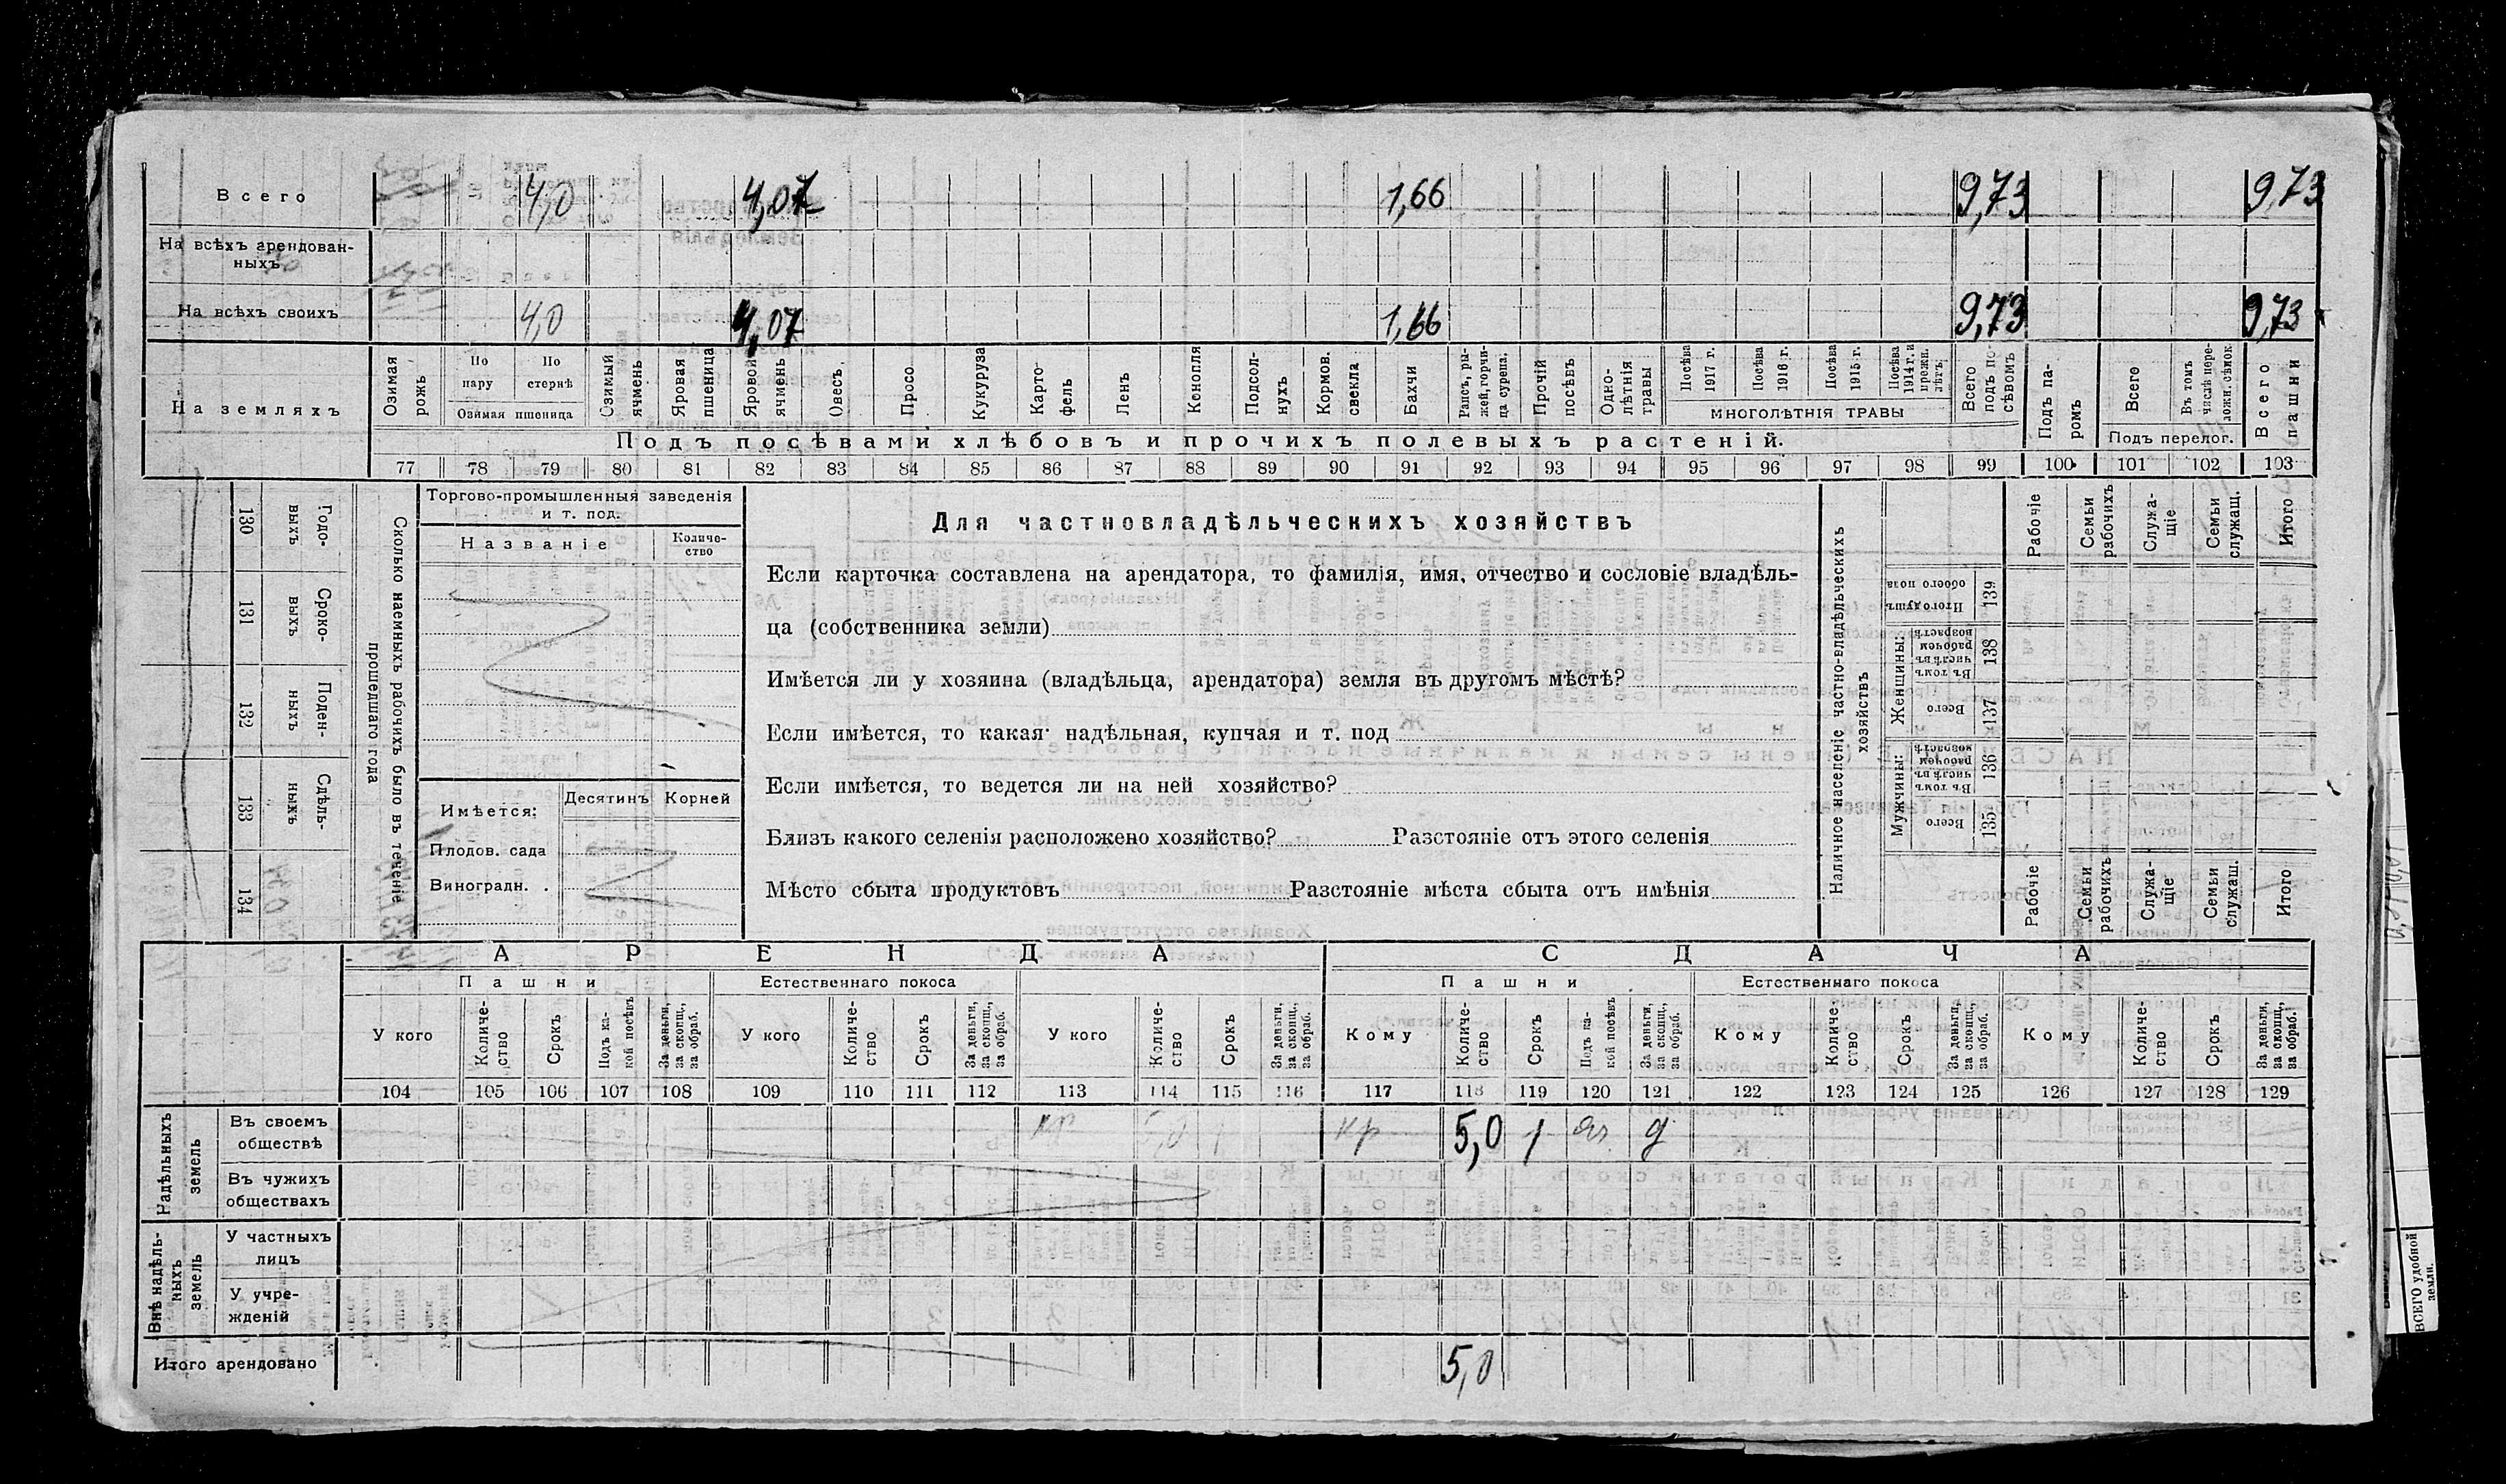 Всего 4,0 4,07 1,66 9,73 9,73
На всѣхъ арендован-
ныхъ
На всѣхъ своихъ 4,0 4,07 1,66 9,73 9,73
На земляхъ
Озимая рожь
По пару
По стернѣ
Озимая пшеница
Озимый ячмень
Яровая пшеница
Яровой ячмень
Овесъ
Просо
Кукуруза
Карто-
фель
Ленъ
Конопля
Подсол-
нухъ
Кормов. свекла
Бахчи
Рапсъ, ры-
жей, горчи-
ца сурепа.
Прочій посѣвъ
Одно-
лѣтнія травы
Посѣва 1917 г.
Посѣва 1916 г.
Посѣва 1915 г.
Посѣва 1914 г. и прежн. лѣтъ.
многолѣтнія травы
Всего подъ по-
сѣвомъ
Подъ па-
ромъ
Всего
Въ томъ числѣ пере-
ложн. сѣнок.
Подъ перелог.
Всего пашни
Подъ посѣвами хлѣбовъ и прочихъ полевыхъ растеній.
77 78 79 80 81 82 83 84 85 86 87 88 89 90 91 92 93 94 95 96 97 98 99 100 101 102 103
130 Годо-
выхъ
131 Сроко-
выхъ
132 Поден-
ныхъ
133 Сдѣль-
ныхъ
134
Сколько наемныхъ рабочихъ было въ теченіе
прошедшаго года
Торгово-промышленныя заведенія
и т. под.
Названіе
Количе-
ство
Имѣется:
Десятинъ Корней
Плодов. сада
Виноградн. .
Для частновладѣльческихъ хозяйствъ
Если карточка составлена на арендатора, то фамилія, имя, отчество и сословіе владѣль-
ца (собственника земли)
Имѣется ли у хозяина (владѣльца, арендатора) земля въ другомъ мѣстѣ?
Если имѣется, то какая надѣльная, купчая и т. под
Если имѣется, то ведется ли на ней хозяйство?
Близъ какого селенія расположено хозяйство? Разстояніе отъ этого селенія
Мѣсто сбыта продуктовъ Разстояніе мѣста сбыта отъ имѣнія
Наличное населеніе частно-владѣльческихъ
хозяйствъ
Рабочіе
Семьи рабочихъ
Служа-
щіе
Семьи служащ.
Итого
Итого душъ обоего пола 139
Женщины:
Въ томъ числѣ въ рабочем возрастѣ 138
Всего 137
Мужчины:
Въ томъ числѣ въ рабочем возрастѣ 136
Всего 135
Рабочіе
Семьи рабочихъ
Служа-
щіе
Семьи служащ.
Итого
АРЕНДА СДАЧА
Пашни Естественнаго покоса Пашни Естественнаго покоса
У кого
Количе-
ство
Срокъ
Подъ ка-
кой посѣвъ
За деньги, за скопщ., за обраб.
У кого
Количе-
ство
Срокъ
За деньги, за скопщ., за обраб.
У кого
Количе-
ство
Срокъ
За деньги, за скопщ., за обраб.
Кому
Количе-
ство
Срокъ
Подъ ка-
кой посѣвъ
За деньги, за скопщ., за обраб.
Кому
Количе-
ство
Срокъ
За деньги, за скопщ., за обраб.
Кому
Количе-
ство
Срокъ
За деньги, за скопщ., за обраб.
104 105 106 107 108 109 110 111 112 113 114 115 116 117 118 119 120 121 122 123 124 125 126 127 128 129
Надѣльныхъ земель
Въ своемъ
обществѣ
кр 5,0 1 кр 5,0 1 яч д
Въ чужихъ
обществахъ
Внѣ надѣль-
ныхъ земель
У частныхъ
лицъ
У учре-
жденій
Итого арендовано 5,0
ВСЕГО удобной
земли.